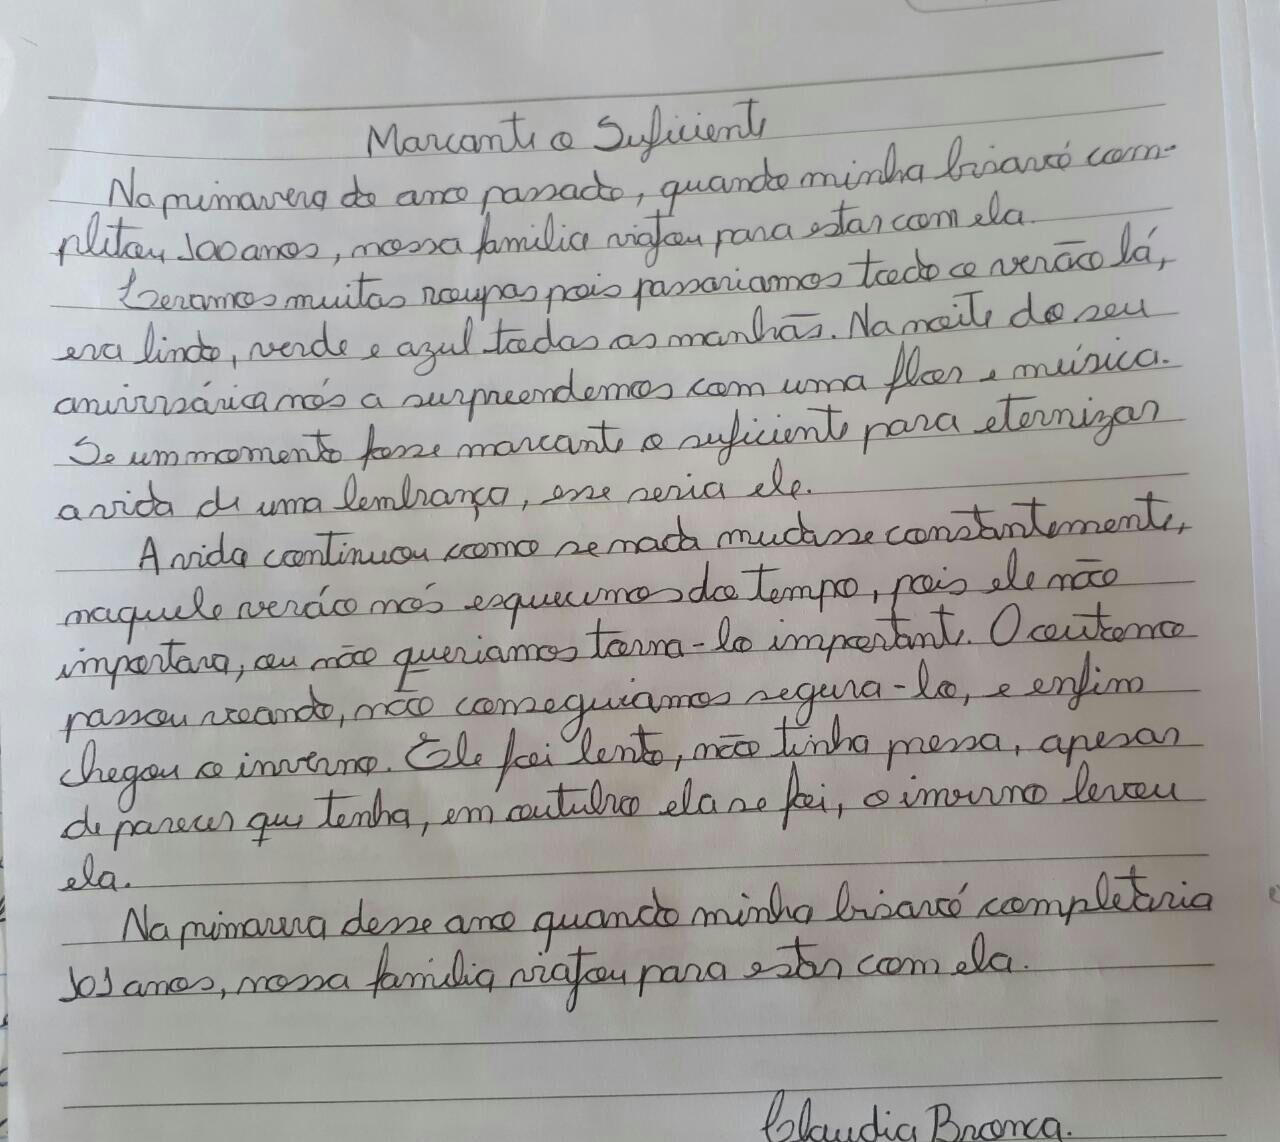 Marcante o Suficiente
Na primavera do ano passado, quando minha bisavó com-
pletou 100 anos, nossa familia viajou para estar com ela.
Levamos muitas roupas pois passariamos todo o verão lá,
era lindo, verde e azul todas as manhãs. Na noite do seu
aniversário nós a surpreendemos com uma flor e música.
Se um momento fosse marcante o suficiente para eternizar
a vida de uma lembrança, esse seria ele.
A vida continuou como se nada mudasse constantemente,
naquele verão nós esquecemos do tempo, pois ele não
importava, ou não queriamos torna-lo importante. O outono
passou voando, não conseguiamos segura-lo, e enfim
chegou o inverno. Ele foi lento, não tinha pressa, apesar
de parecer que tenha, em outubro ela se foi, o inverno levou
ela.
Na primavera desse ano quando minha bisavó completaria
101 anos, nossa familia viajou para estar com ela.
Claudia Bronca.